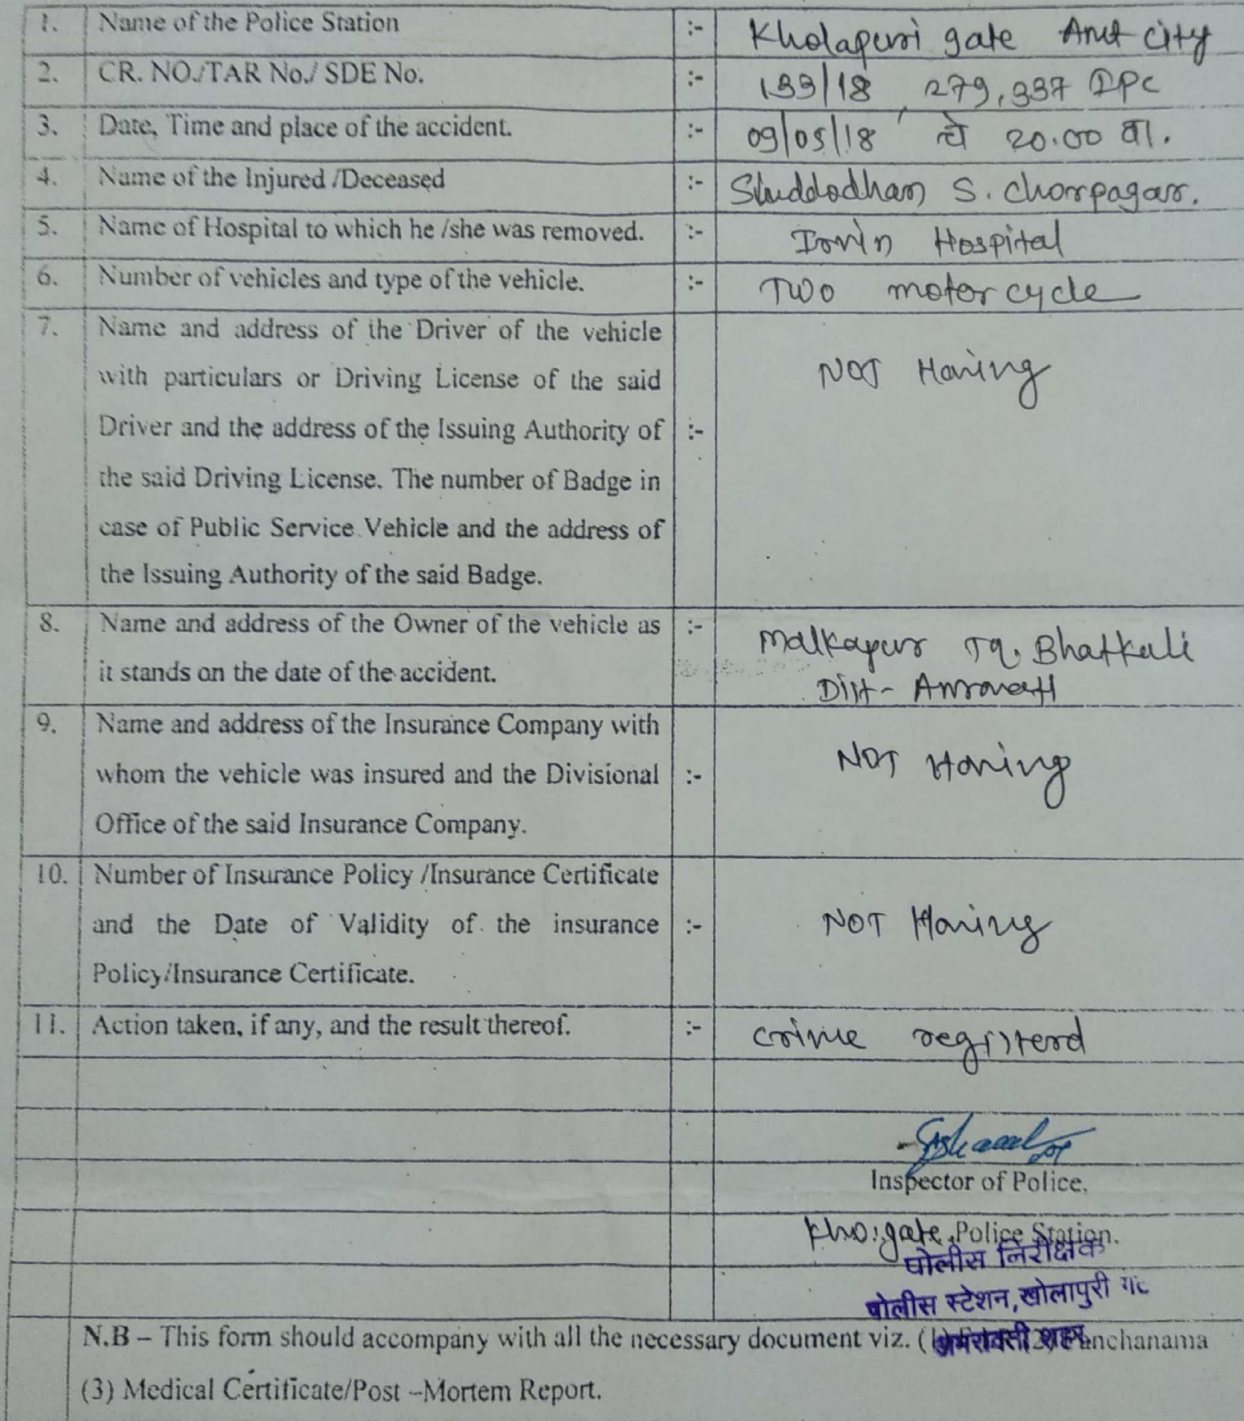 1. Name of the Police Station :- Kholapuri gate Amt city
2. CR. NO./TAR No./ SDE No. :- 133/18, 279,337 IPC
3. Date, Time and place of the accident. :- 09/05/18 चे 20.00 वा.
4. Name of the Injured /Deceased :- Shuddodhan S. Chorpagar.
5. Name of Hospital to which he /she was removed. :- Irwin Hospital
6. Number of vehicles and type of the vehicle. :- Two motor cycle
7. Name and address of the Driver of the vehicle
with particulars or Driving License of the said NOT Having
Driver and the address of the Issuing Authority of :-
the said Driving License. The number of Badge in
case of Public Service Vehicle and the address of
the Issuing Authority of the said Badge.
8. Name and address of the Owner of the vehicle as :- Malkapur Tq. Bhatkali
it stands on the date of the accident. Dist- Amravati
9. Name and address of the Insurance Company with
whom the vehicle was insured and the Divisional :- NOT Having
Office of the said Insurance Company.
10. Number of Insurance Policy /Insurance Certificate
and the Date of Validity of the insurance :- NOT Having
Policy/Insurance Certificate.
11. Action taken, if any, and the result thereof. :- crime registerd
Inspector of Police,
Kho.gate, Police Station.
पोलीस निरीक्षक
पोलीस स्टेशन, खोलापुरी गेट
अमरावती शहर
N.B – This form should accompany with all the necessary document viz. (1) Panchanama
(3) Medical Certificate/Post –Mortem Report.